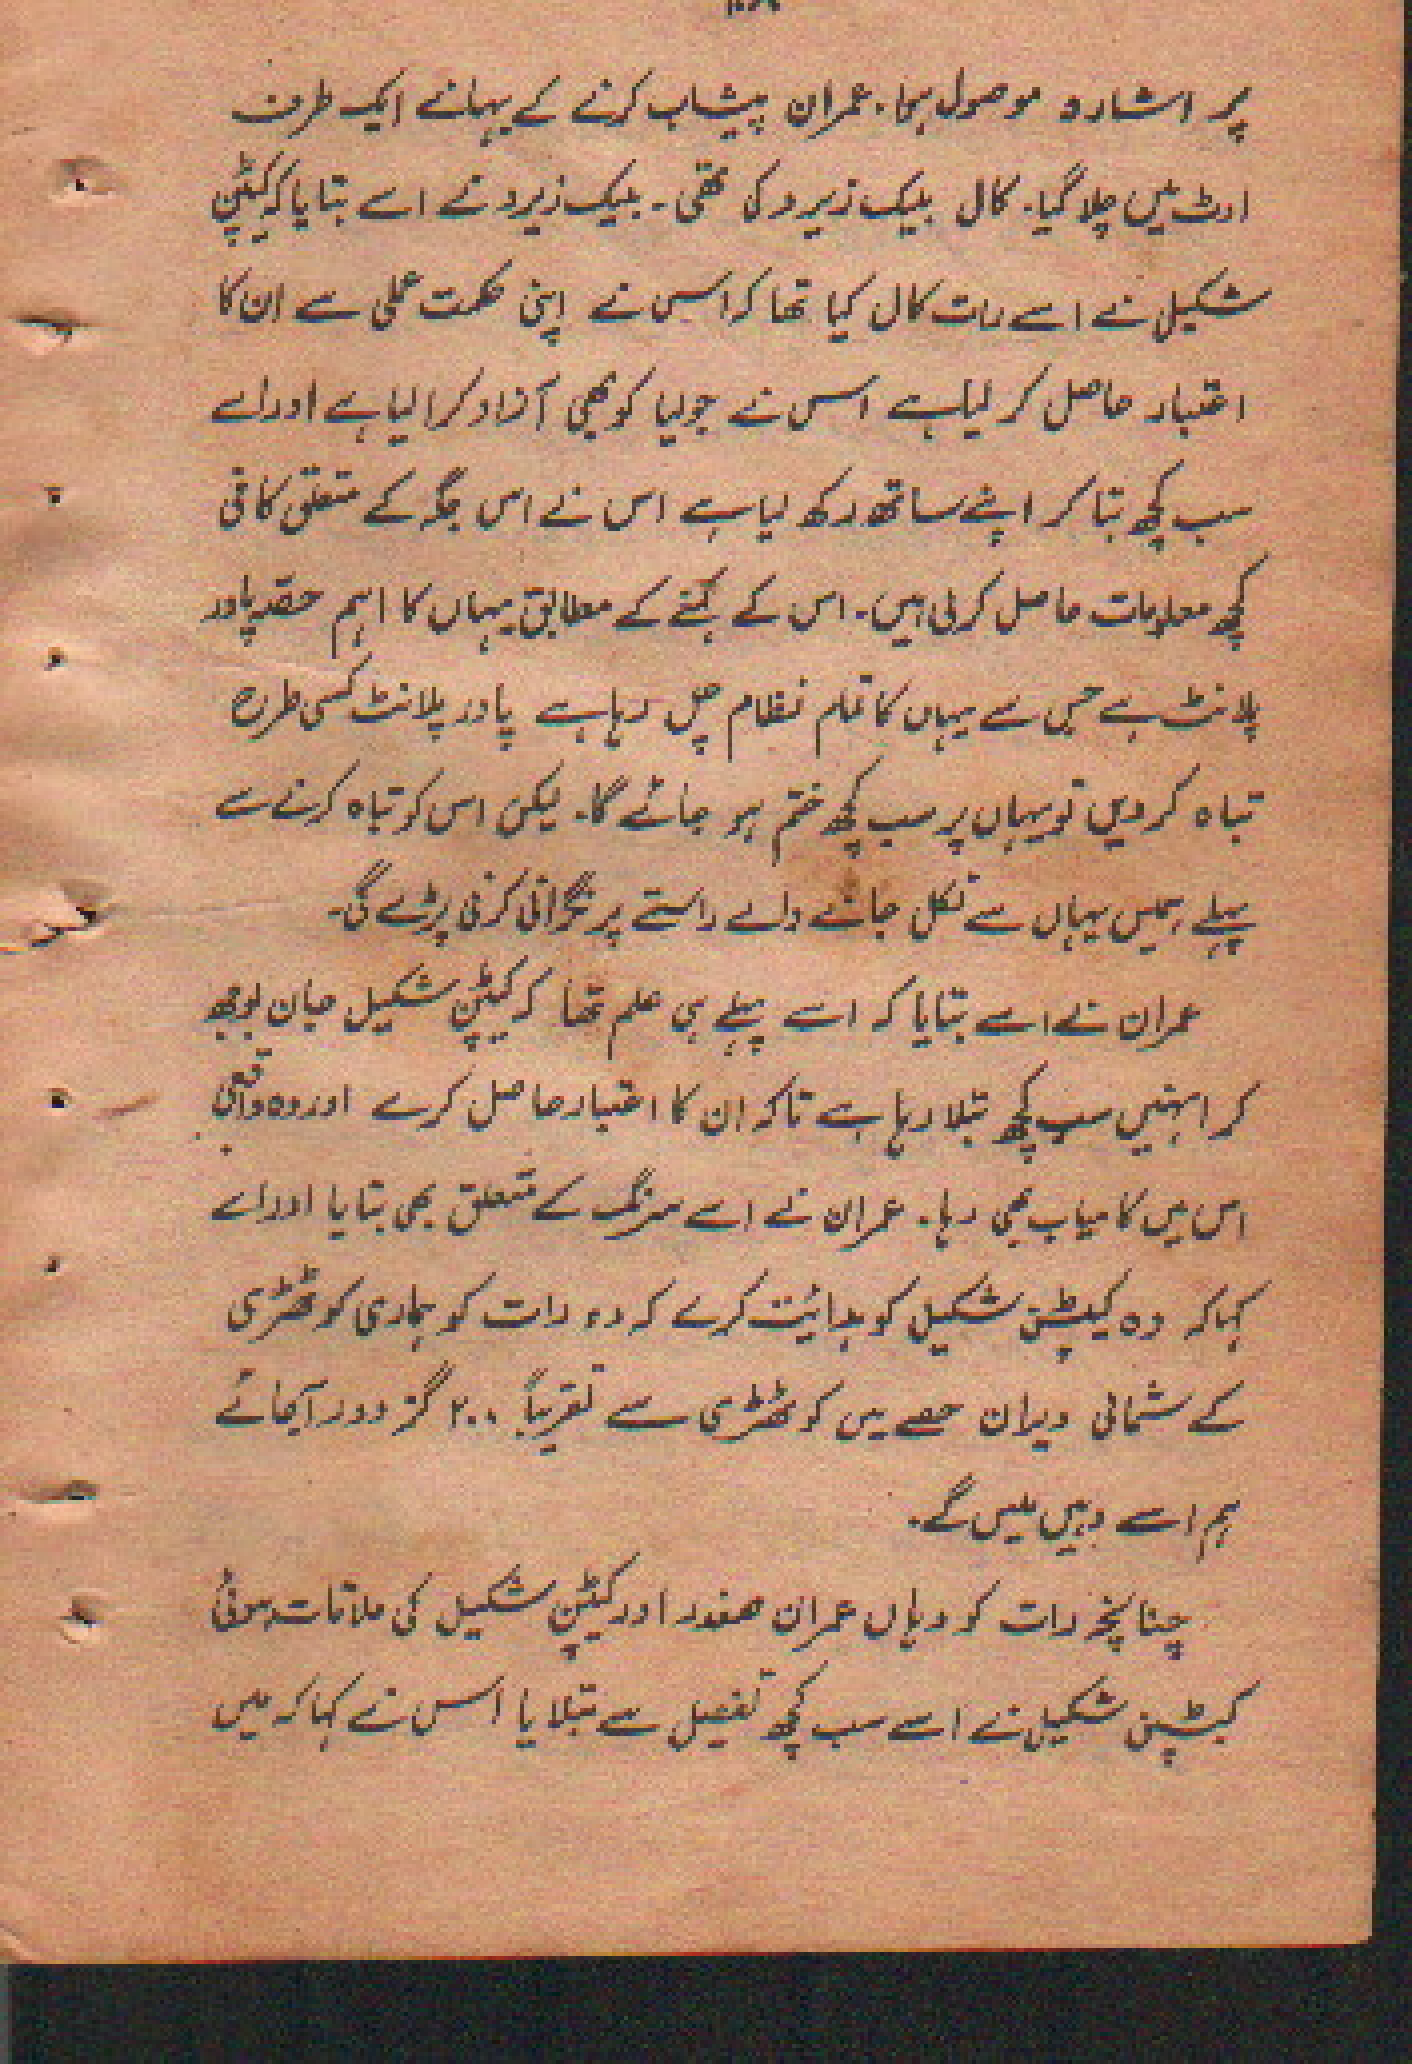 پر اشارہ موصول ہوا۔ عمران پیشاب کرنے کے بہانے ایک طرف
اوٹ میں چلا گیا۔ کال بلیک زیرو کی تھی۔ بلیک زیرو نے اسے بتایا کہ کیپٹن
شکیل نے اسے رات کال کیا تھا کہ اس نے اپنی حکمت عملی سے ان کا
اعتبار حاصل کر لیا ہے اس نے جولیا کو بھی آزاد کرا لیا ہے اور اسے
سب کچھ بتا کر اپنے ساتھ رکھ لیا ہے اس نے اس جگہ کے متعلق کافی
کچھ معلومات حاصل کر لی ہیں۔ اس کے کہنے کے مطابق یہاں کا اہم حصہ پاور
پلانٹ ہے جس سے یہاں کا تمام نظام چل رہا ہے پاور پلانٹ کسی طرح
تباہ کر دیں تو یہاں پر سب کچھ ختم ہو جائے گا۔ لیکن اس کو تباہ کرنے سے
پہلے ہمیں یہاں سے نکل جانے والے راستے پر نگرانی کرنی پڑے گی۔
عمران نے اسے بتایا کہ اسے پہلے ہی علم تھا کہ کیپٹن شکیل جان بوجھ
کر انہیں سب کچھ بتلا رہا ہے تاکہ ان کا اعتبار حاصل کرے اور وہ واقعی
اس میں کامیاب بھی رہا۔ عمران نے اسے سرنگ کے متعلق بھی بتایا اور اسے
کہا کہ وہ کیپٹن شکیل کو ہدائیت کرے کہ وہ رات کو ہماری کوٹھڑی
کے شمالی ویران حصے میں کوٹھڑی سے تقریباً ۲۰۰ گز دور آ جائے
ہم اسے وہیں ملیں گے۔
چنانچہ رات کو وہاں عمران صفدر اور کیپٹن شکیل کی ملاقات ہوئی
کیپٹن شکیل نے اسے سب کچھ تفصیل سے بتلایا اس نے کہا کہ میں